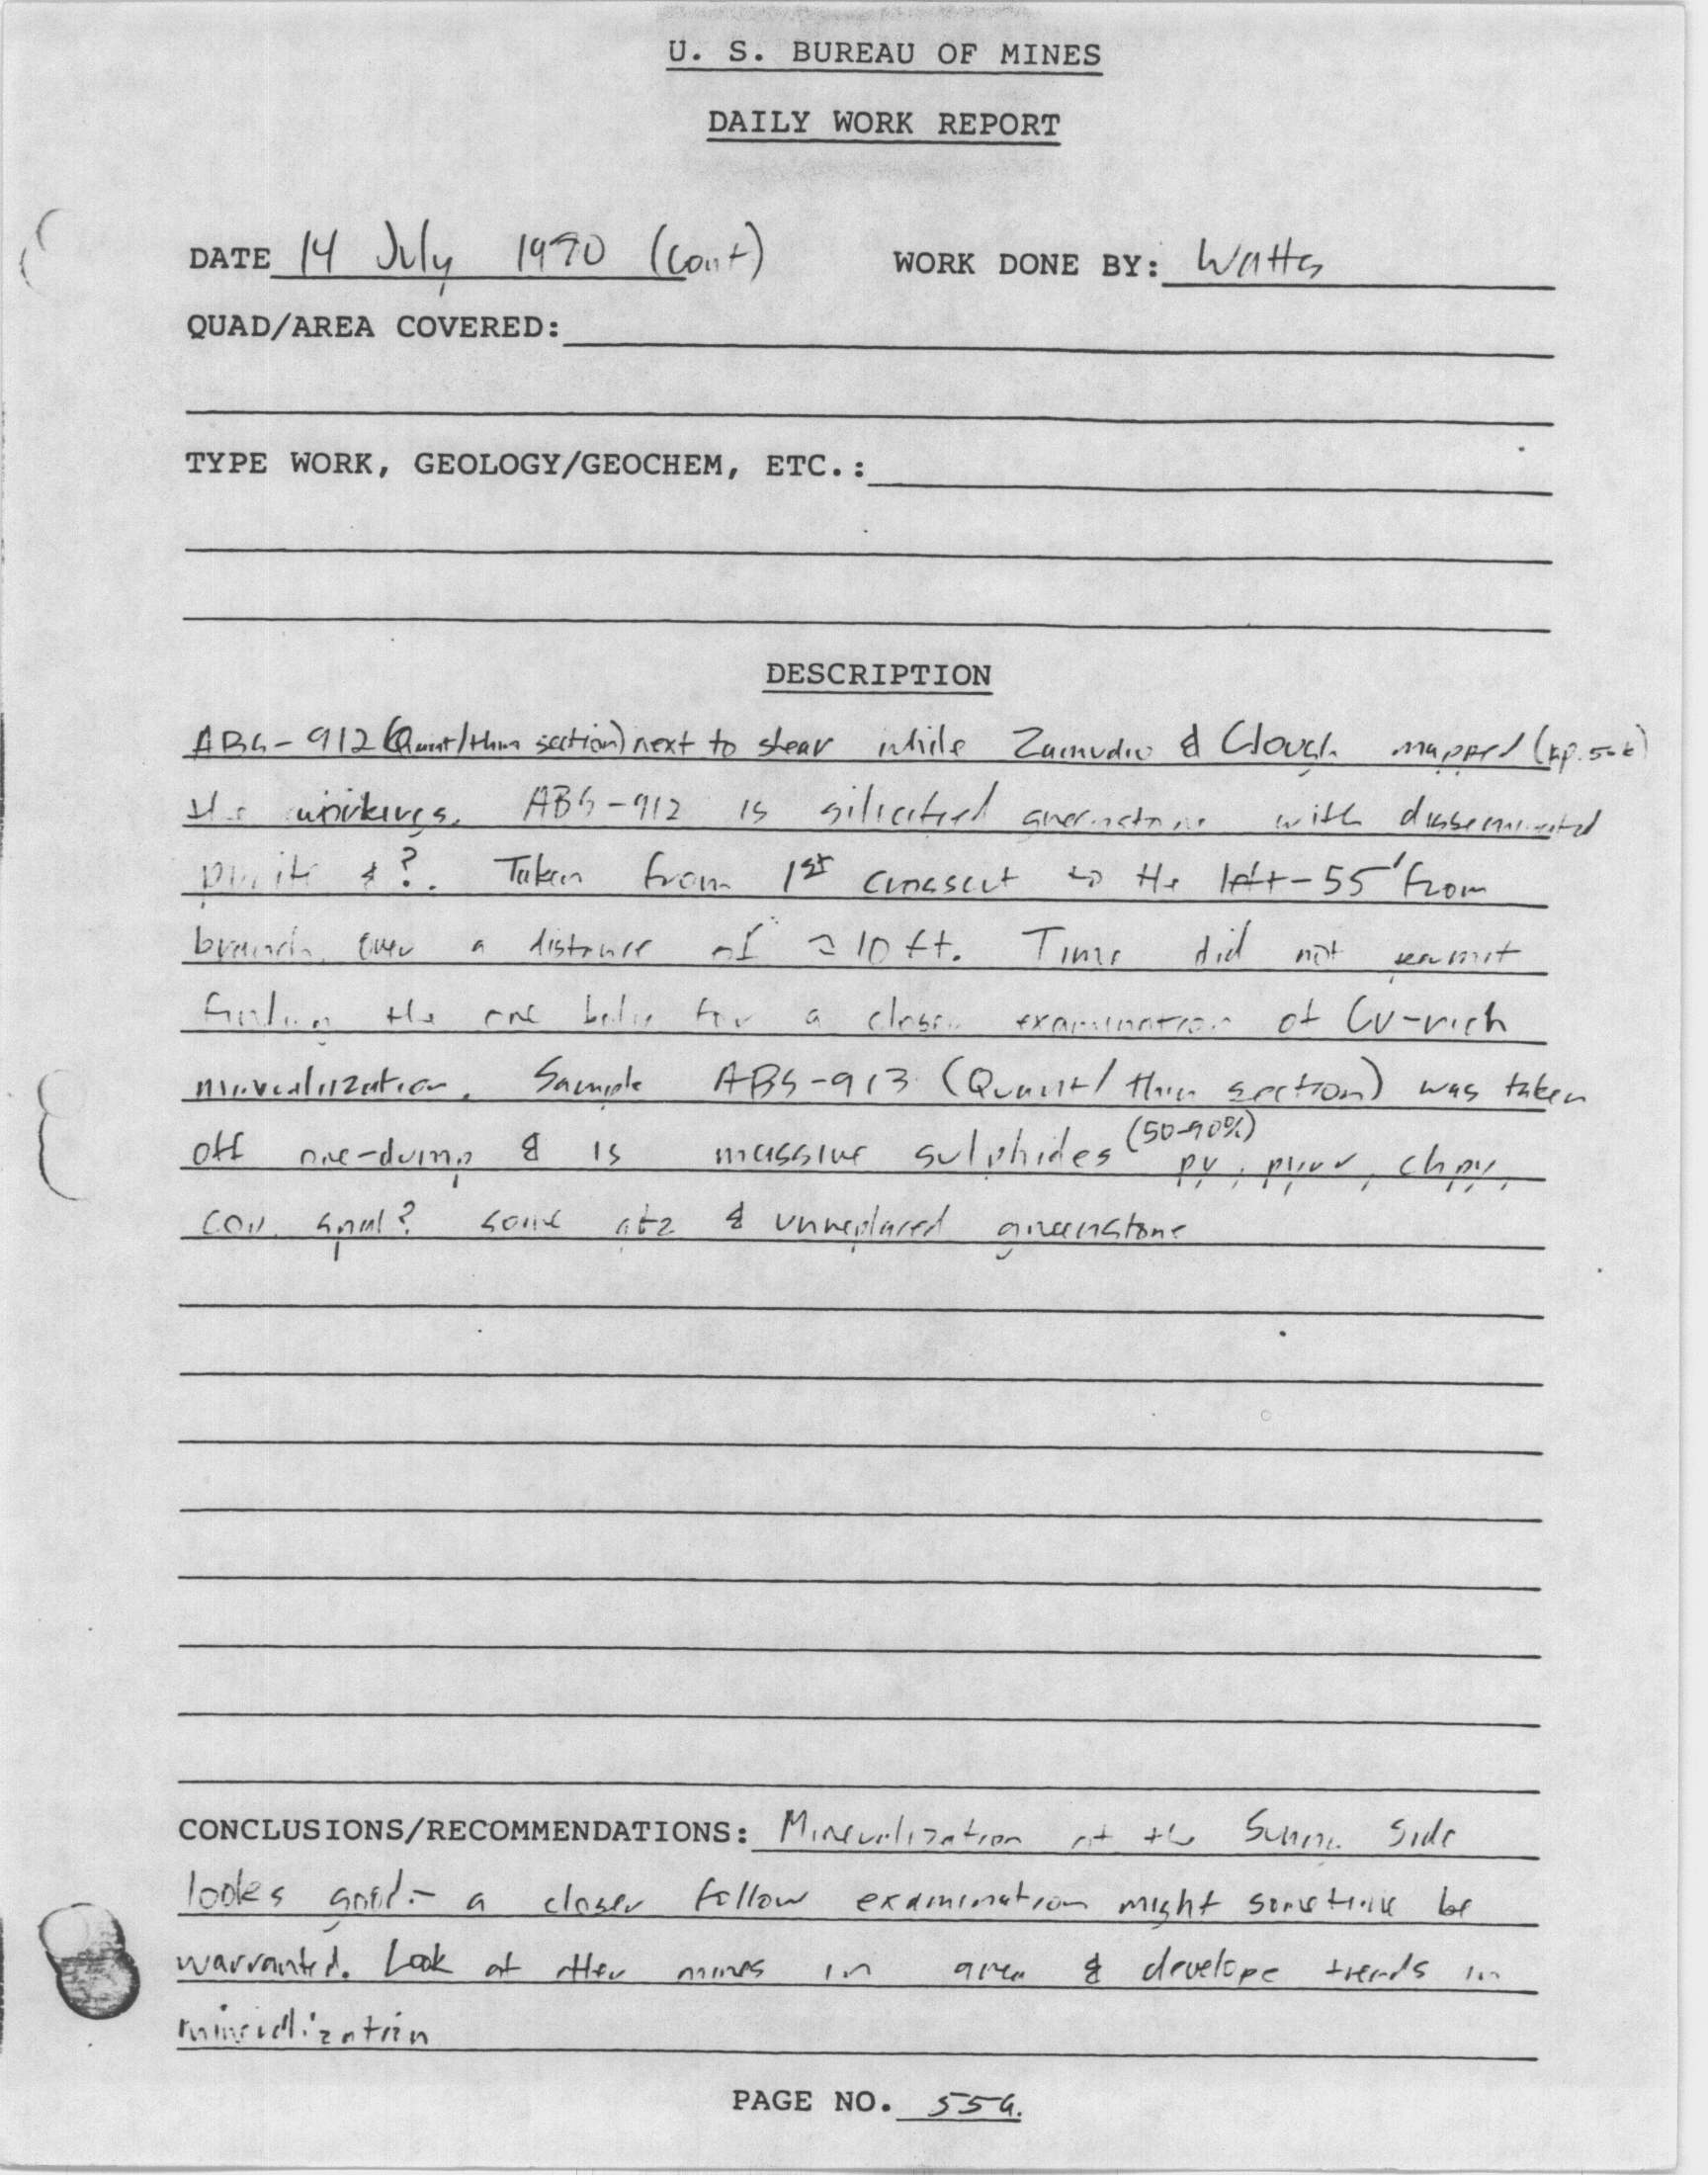 U. S. BUREAU OF MINES
DAILY WORK REPORT
DATE 14 July 1990 (cont) WORK DONE BY: Watts
QUAD/AREA COVERED:
TYPE WORK, GEOLOGY/GEOCHEM, ETC.:
DESCRIPTION
ABS-912 (Quant/thin section) next to shear while Zamudio & Clough mapped
the workings. ABS-912 is silicified greenstone with disseminated
pyrite & ?. Taken from 1st crosscut to the left - 55' from
branch over a distance of ≈ 10 ft. Time did not permit
finding the ore body for a closer examination of Cu-rich
mineralization. Sample ABS-913 (Quant/thin section) was taken
off ore-dump & is massive sulphides (50-90%) py, pyrr, chpy,
cov, sphal? some qtz & unreplaced greenstone
CONCLUSIONS/RECOMMENDATIONS: Mineralization at the Sunny Side
looks good - a closer follow examination might sometime be
warranted. Look at other mines in area & develope trends in
mineralization
PAGE NO. 55a.